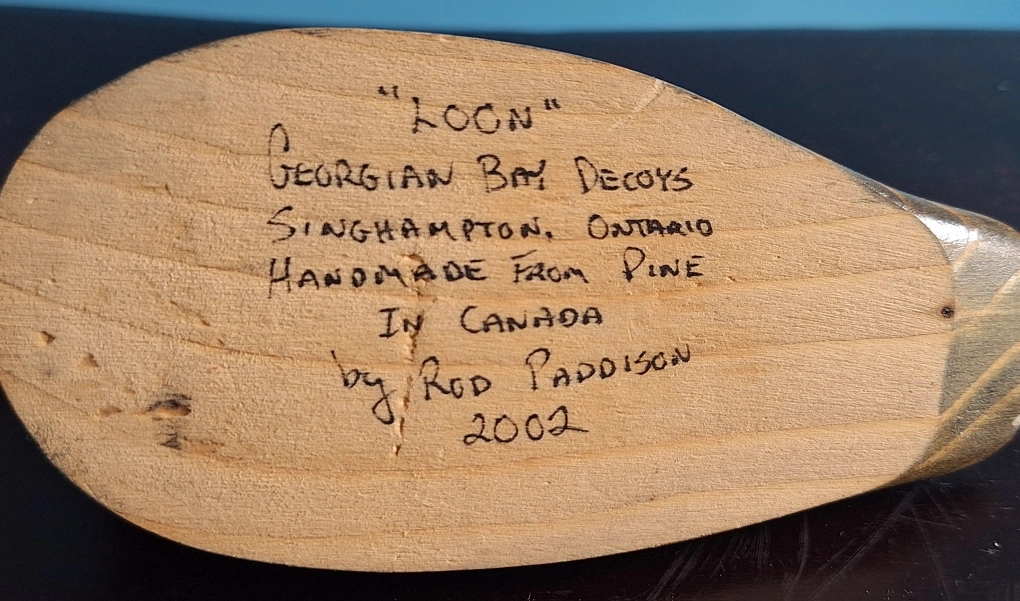 "LOON"
GEORGIAN BAY DECOYS
SINGHAMPTON, ONTARIO
HANDMADE FROM PINE
IN CANADA
by ROD PADDISON
2002